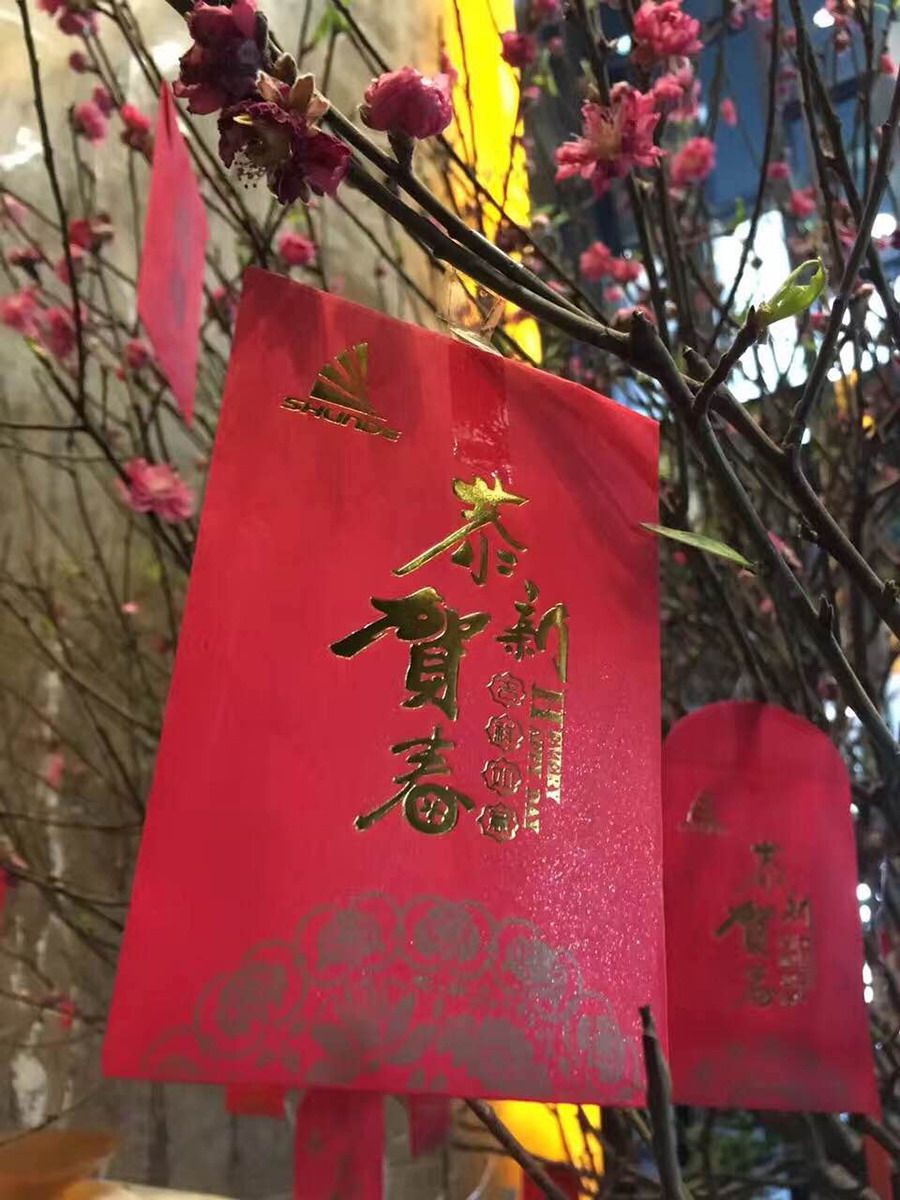 SHUNDE
恭
賀
新
春
EVERY
DAY
恭
賀
新
春